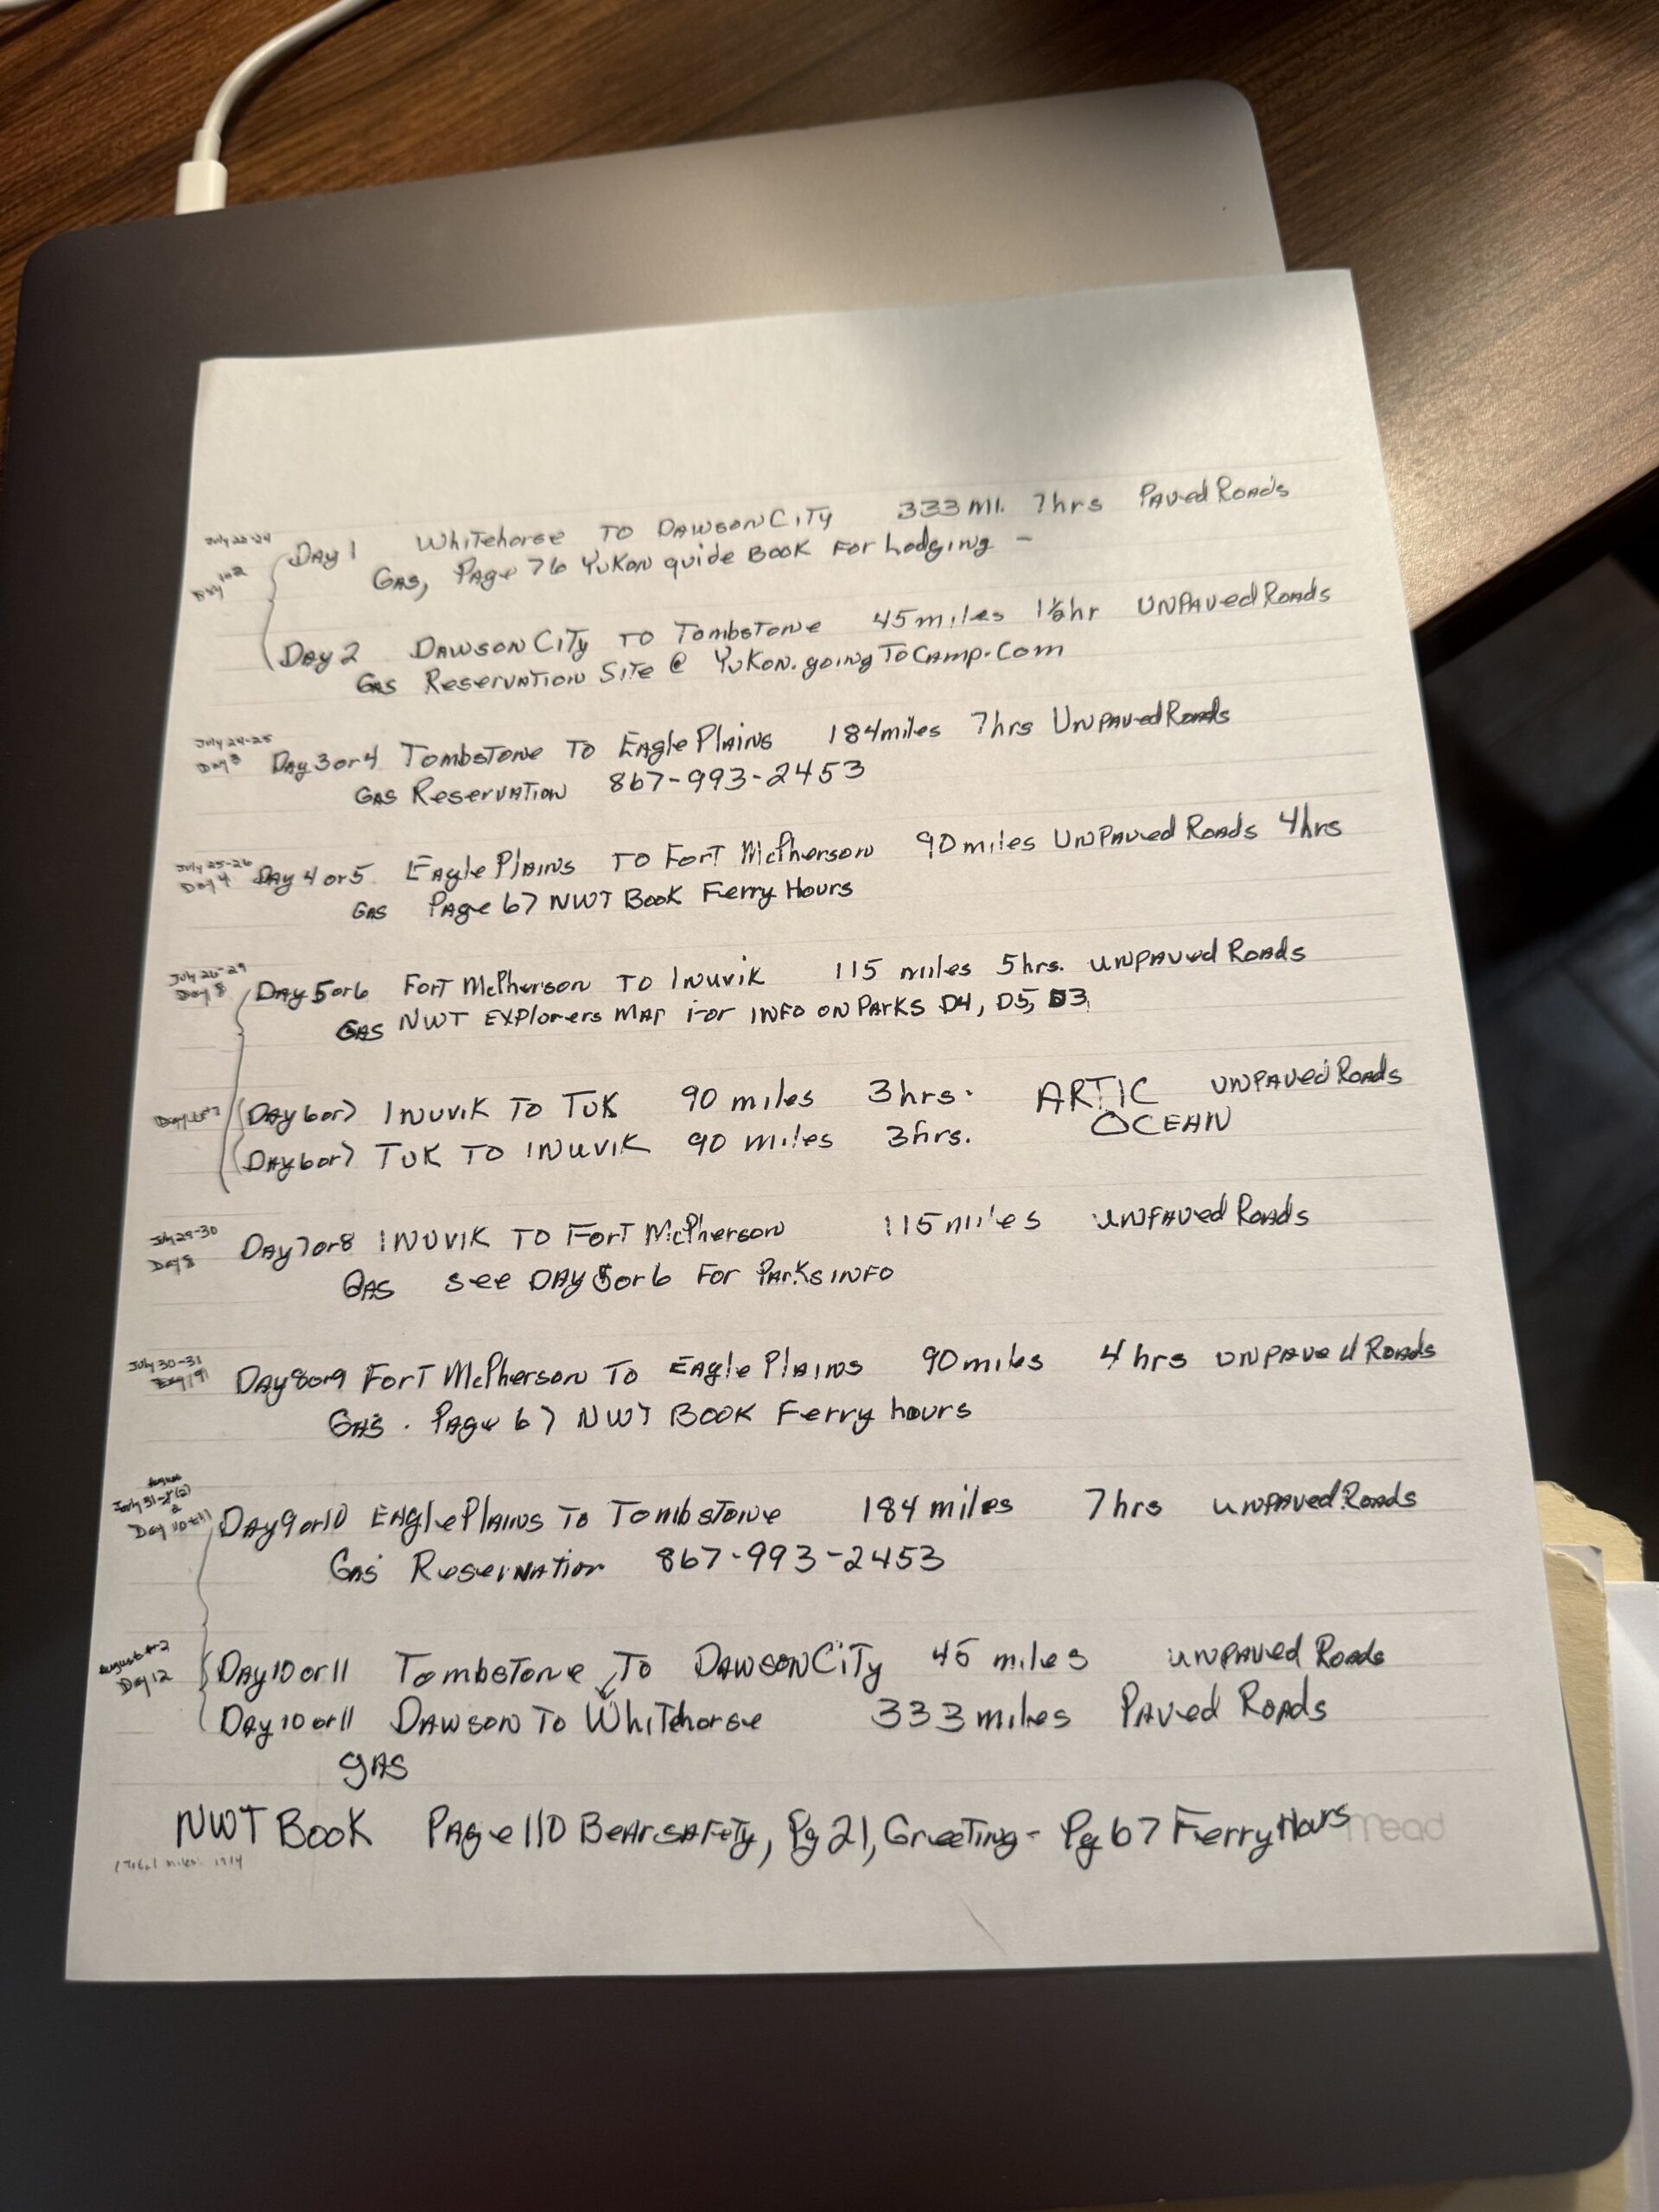 Day 1 Whitehorse TO DAWSON CITY 333 MI. 7hrs PAved Roads
GAS, PAge 76 YuKon guide BOOK For Lodging -
Day 2 DAWSON CITY TO TombsTone 45 miles 1½hr UNPAved Roads
GAS ReservATION SiTe @ YuKon.goingToCamp.Com
July 24-25
Day 3
DAy 3 or 4 TombsTone TO EAgle PlAins 184 miles 7hrs UNPAved Roads
GAS ReservATION 867-993-2453
July 25-26
Day 4
DAy 4 or 5 EAgle PlAins TO ForT McPherson 90 miles UNPAved Roads 4hrs
GAS PAge 67 NWT BooK Ferry Hours
July 26-29
DAy 5 or 6 ForT McPherson TO INuvik 115 miles 5hrs. UNPAved Roads
GAS NWT EXPlorers MAP For INFO ON PArKs D4, D5, D3
(DAy 6 or 7 INUVIK TO TUK 90 miles 3hrs. ARTIC UNPAved Roads
OCEAN
(DAy 6 or 7 TUK TO INUVIK 90 miles 3hrs.
July 29-30
Day 8
DAy 7 or 8 INUVIK TO ForT McPherson 115 miles UNPAved Roads
GAS see DAY 5 or 6 For PArKs INFO
July 30-31
DAy 8 or 9 ForT McPherson TO EAgle PlAins 90 miles 4 hrs UNPAved Roads
GAS . PAge 67 NWT BOOK Ferry hours
DAy 9 or 10 EAgle PlAins To TombsTone 184 miles 7hrs UNPAved Roads
GAS ReservATion 867-993-2453
Day 12
DAy 10 or 11 TombsTone To DAWSON CiTy 45 miles UNPAved Roads
DAy 10 or 11 DAWSON To WhiTehorse 333 miles PAved Roads
gAS
NWT BooK PAge 110 BeAr sAFeTy, Pg 21, GreeTing - Pg 67 Ferry Hours Mead
(Total miles: 1914